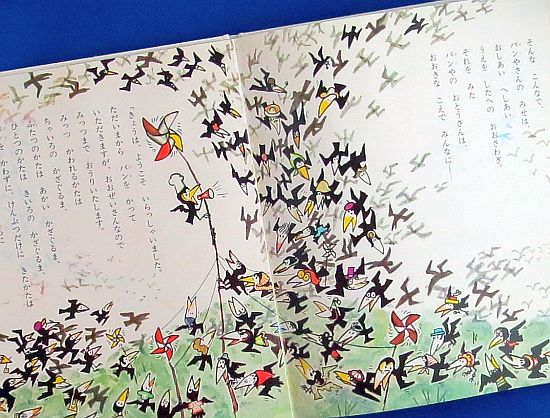 そんな こんなで、
パンやさんの みせは
おしあい へしあい
うえを したへの おおさわぎ。
それを みた
パンやの おとうさんは、
おおきな こえで みんなに――
「きょうは、ようこそ いらっしゃいました。
ただいまから パンを かって
いただきますが、おおぜいさんなので
みっつまで おうりいたします。
みっつ かわれるかたは
ちゃいろの かざぐるま、
ふたつのかたは あかい かざぐるま、
ひとつのかたは きいろの かざぐるま、
かわずに、けんぶつだけに きたかたは